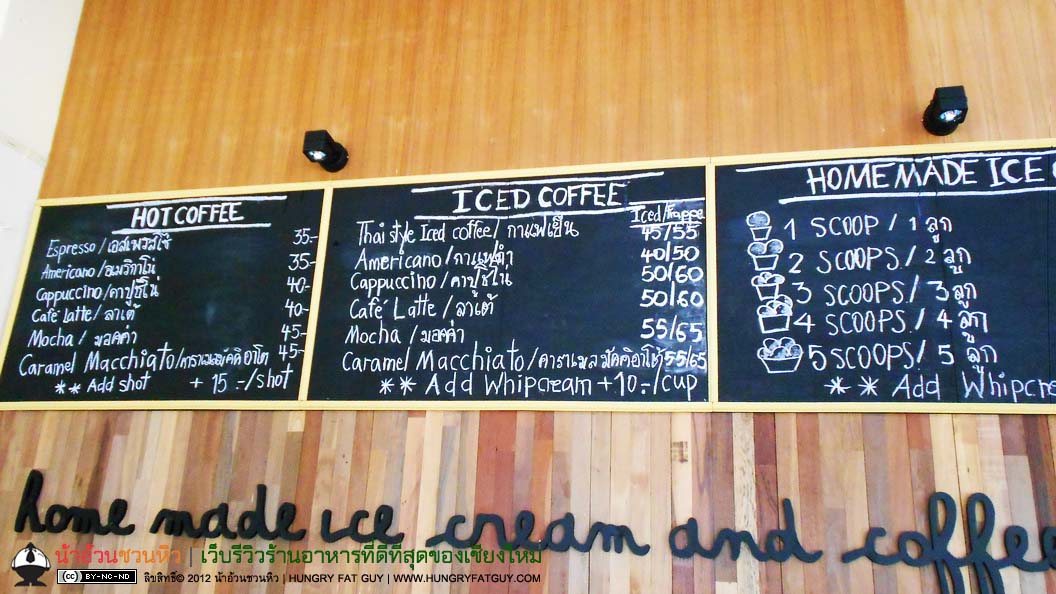 HOT COFFEE
Espresso/เอสเพรสโซ่ 35.-
Americano/อเมริกาโน่ 35.-
Cappuccino/คาปูชิโน่ 40.-
Café latte/ลาเต้ 40.-
Mocha / มอคค่า 45.-
Caramel Macchiato/คาราเมลมัคคิอาโต 45.-
** Add shot + 15.-/shot
ICED COFFEE
Iced/Frappe
Thai style Iced coffee/ กาแฟเย็น 45/55
Americano/กาแฟดำ 40/50
Cappucino/คาปูชิโน่ 50/60
Café Latte/ลาเต้ 50/60
Mocha / มอคค่า 55/65
Caramel Macchiato/คาราเมลมัคคิอาโต้ 55/65
** Add Whipcream +10.-/cup
HOMEMADE ICE
1 SCOOP / 1 ลูก
2 SCOOPS / 2 ลูก
3 SCOOPS / 3 ลูก
4 SCOOPS / 4 ลูก
5 SCOOPS / 5 ลูก
** Add Whipcre
home made ice cream and coffee
น้าอ้วนชวนหิว | เว็บรีวิวร้านอาหารที่ดีที่สุดของเชียงใหม่
cc BY-NC-ND ลิขสิทธิ์© 2012 น้าอ้วนชวนหิว | HUNGRY FAT GUY | WWW.HUNGRYFATGUY.COM